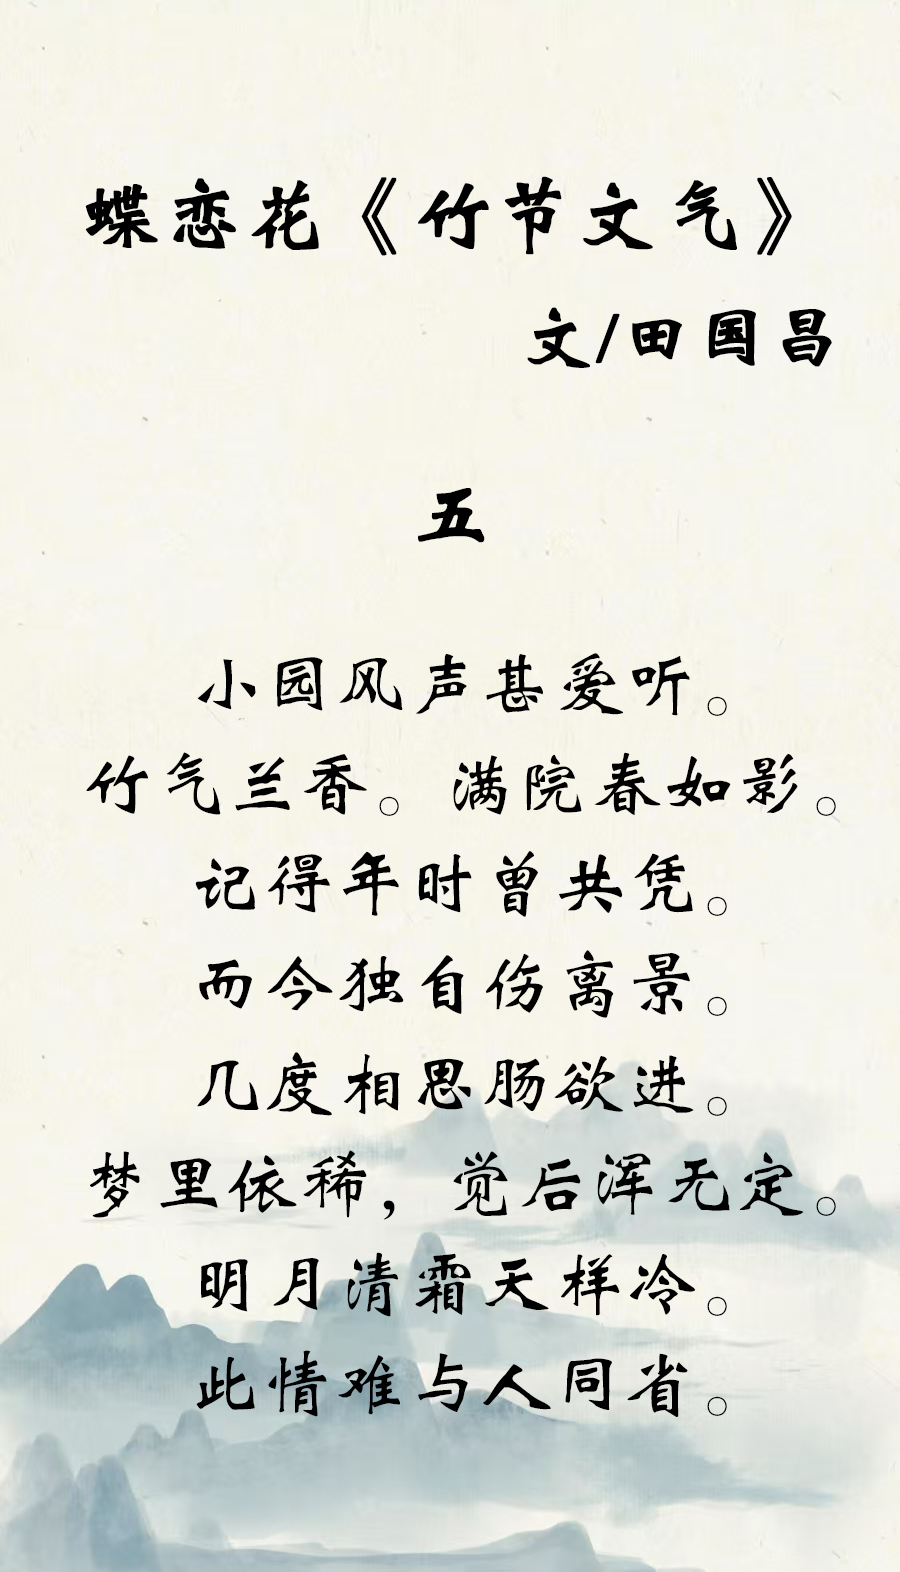 蝶恋花《竹节文气》
文/田国昌
五
小园风声甚爱听。
竹气兰香。满院春如影。
记得年时曾共凭。
而今独自伤离景。
几度相思肠欲进。
梦里依稀，觉后浑无定。
明月清霜天样冷。
此情难与人同省。